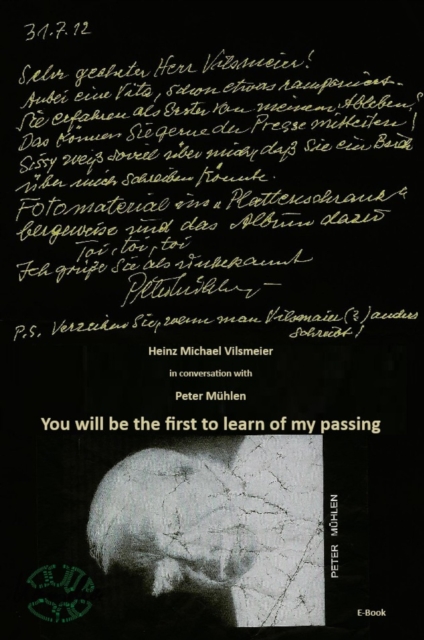 31.7.12
Sehr geehrter Herr Vilsmeier!
Anbei eine Vita, schon etwas ramponiert.
Sie erfahren als Erster von meinem Ableben,
Das können Sie gerne der Presse mitteilen!
Sissy weiß soviel über mich, daß Sie ein Buch
über mich schreiben könnte.
Fotomaterial im "Plattenschrank"
bergeweise und das Album dazu
Toi, toi, toi
Ich grüße Sie als unbekannt
Peter Mühlen
P.S. Verzeihen Sie, wenn man Vilsmaier (?) anders
schreibt!
Heinz Michael Vilsmeier
in conversation with
Peter Mühlen
You will be the first to learn of my passing
PETER MÜHLEN
E-Book